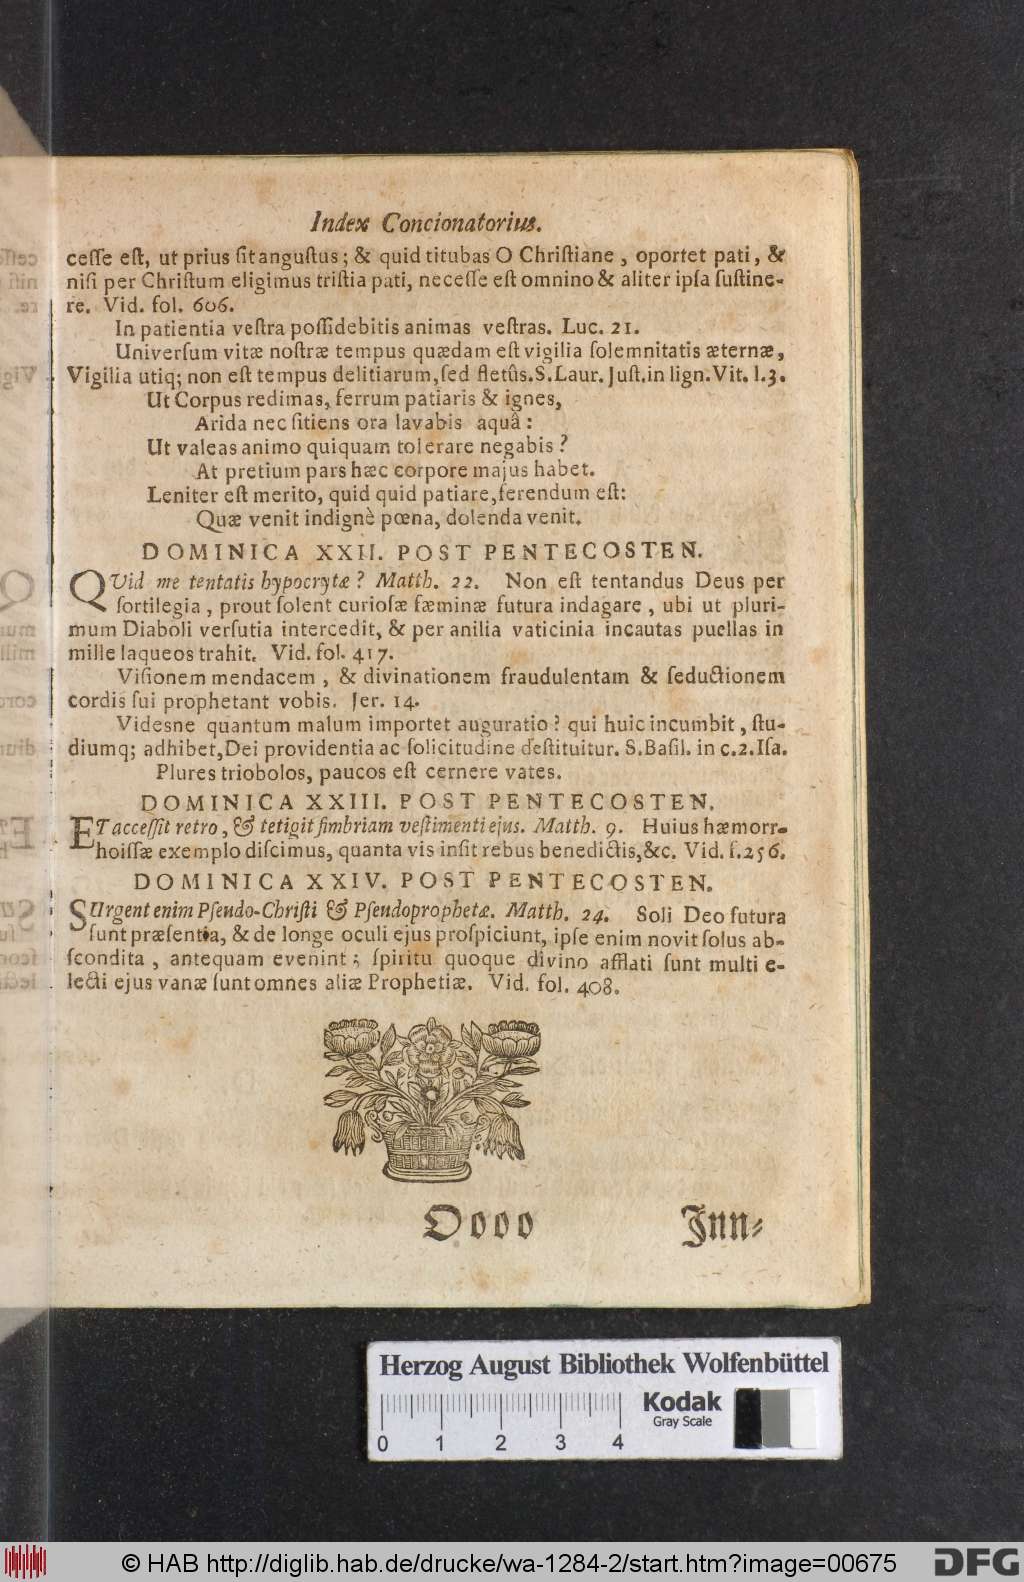 Index Concionatorius.
ceſſe eſt, ut prius ſit anguſtus; & quid titubas O Chriſtiane, oportet pati, &
niſi per Chriſtum eligimus triſtia pati, neceſſe eſt omnino & aliter ipſa ſuſtine-
re. Vid. fol. 606.
In patientia veſtra poſſidebitis animas veſtras. Luc. 21.
Univerſum vitæ noſtræ tempus quædam eſt vigilia ſolemnitatis æternæ,
Vigilia utiq; non eſt tempus delitiarum, ſed fletûs. S. Laur. Juſt. in lign. Vit. l. 3.
Ut Corpus redimas, ferrum patiaris & ignes,
Arida nec ſitiens ora lavabis aquâ:
Ut valeas animo quiquam tolerare negabis?
At pretium pars hæc corpore majus habet.
Leniter eſt merito, quid quid patiare, ferendum eſt:
Quæ venit indignè pœna, dolenda venit.
DOMINICA XXII. POST PENTECOSTEN.
QUid me tentatis hypocrytæ? Matth. 22. Non eſt tentandus Deus per
ſortilegia, prout ſolent curioſæ fæminæ futura indagare, ubi ut pluri-
mum Diaboli verſutia intercedit, & per anilia vaticinia incautas puellas in
mille laqueos trahit. Vid. fol. 417.
Viſionem mendacem, & divinationem fraudulentam & ſeductionem
cordis ſui prophetant vobis. Jer. 14.
Videsne quantum malum importet auguratio? qui huic incumbit, ſtu-
diumq; adhibet, Dei providentia ac ſolicitudine deſtituitur. S. Baſil. in c. 2. Iſa.
Plures triobolos, paucos eſt cernere vates.
DOMINICA XXIII. POST PENTECOSTEN.
ET acceſſit retro, & tetigit fimbriam veſtimenti ejus. Matth. 9. Huius hæmorr-
hoiſſæ exemplo diſcimus, quanta vis inſit rebus benedictis, &c. Vid. f. 256.
DOMINICA XXIV. POST PENTECOSTEN.
SUrgent enim Pſeudo-Chriſti & Pſeudoprophetæ. Matth. 24. Soli Deo futura
ſunt præſentia, & de longe oculi ejus proſpiciunt, ipſe enim novit ſolus ab-
ſcondita, antequam evenint; ſpiritu quoque divino afflati ſunt multi e-
lecti ejus vanæ ſunt omnes aliæ Prophetiæ. Vid. fol. 408.
Oooo Inn-
Herzog August Bibliothek Wolfenbüttel
Kodak
Gray Scale
0 1 2 3 4
© HAB http://diglib.hab.de/drucke/wa-1284-2/start.htm?image=00675
DFG